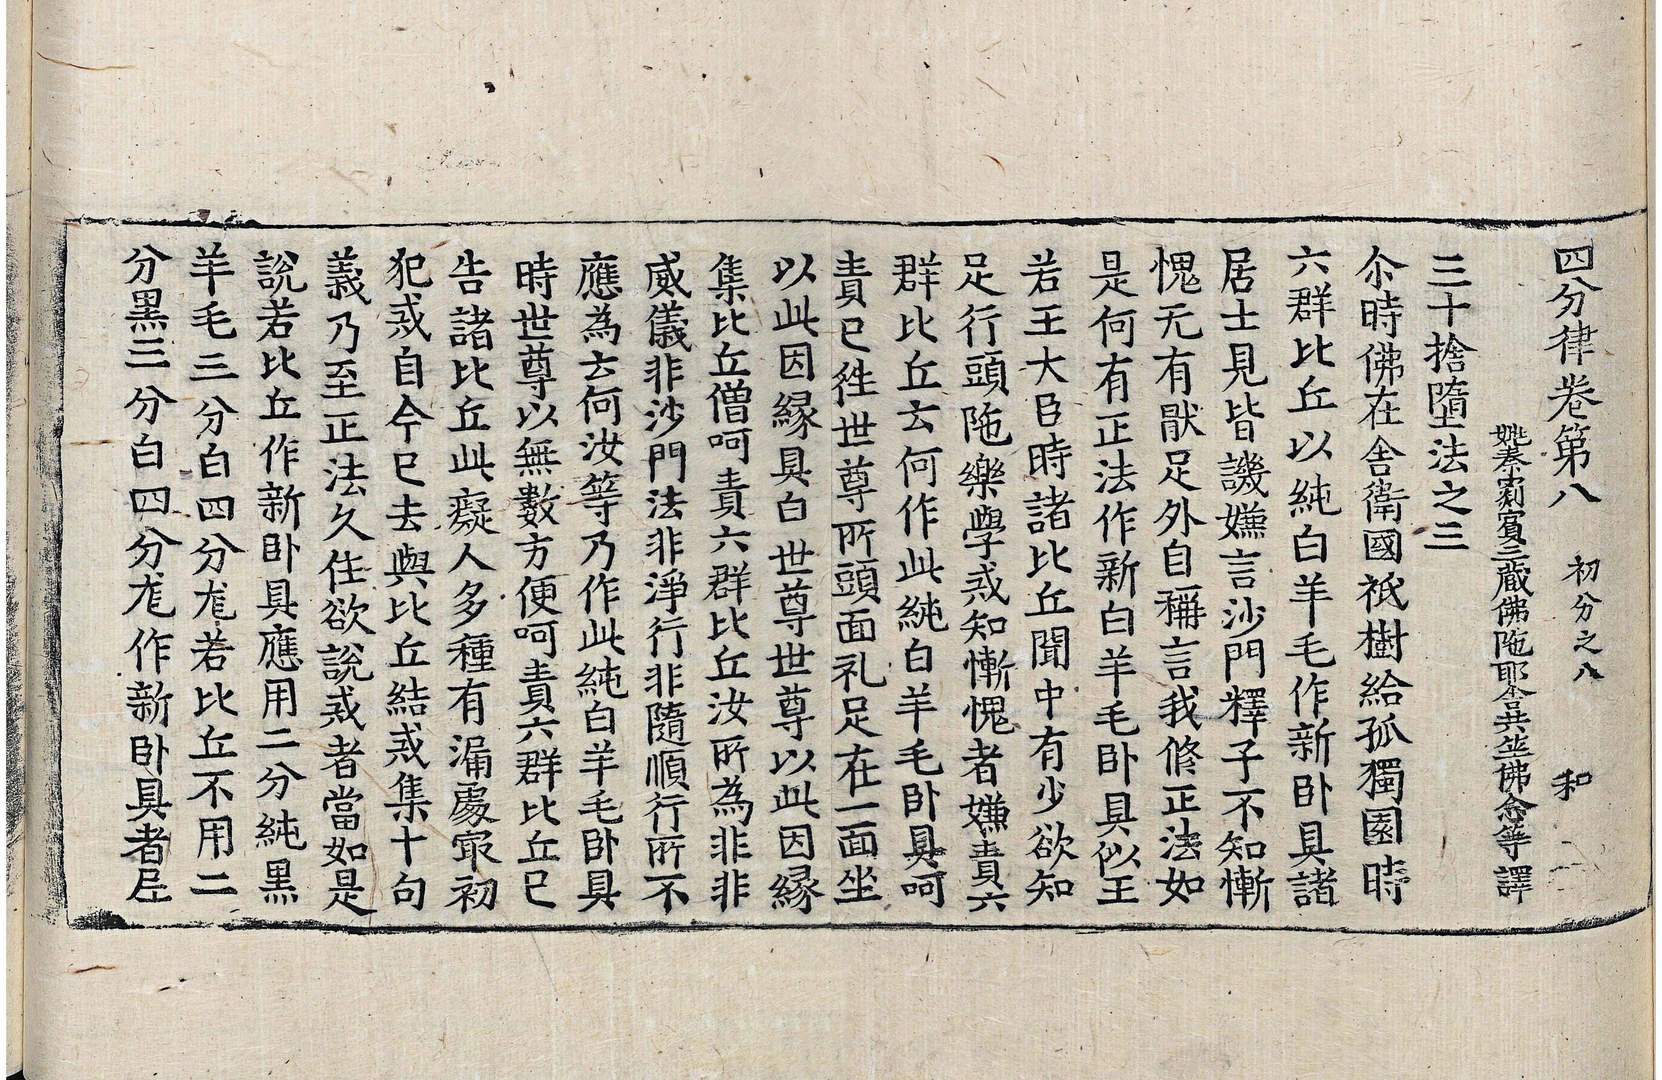 四分律卷第八 初分之八 和
姚秦罽賓三藏佛陁耶舎共竺佛念等譯
三十捨墮法之三
尒時佛在舎衛國祇樹給孤獨園時
六群比丘以純白羊毛作新卧具諸
居士見皆譏嫌言沙門釋子不知慚
愧无有猒足外自稱言我修正法如
是何有正法作新白羊毛卧具似王
若王大臣時諸比丘聞中有少欲知
足行頭陁樂學戒知慚愧者嫌責六
群比丘云何作此純白羊毛卧具呵
責已徃世尊所頭面礼足在一面坐
以此因縁具白世尊世尊以此因縁
集比丘僧呵責六群比丘汝所為非非
威儀非沙門法非淨行非隨順行所不
應為云何汝等乃作此純白羊毛卧具
時世尊以無數方便呵責六群比丘已
告諸比丘此癡人多種有漏處㝡初
犯戒自今已去與比丘結戒集十句
義乃至正法久住欲說戒者當如是
說若比丘作新卧具應用二分純黒
羊毛三分白四分尨若比丘不用二
分黒三分白四分尨作新卧具者尼